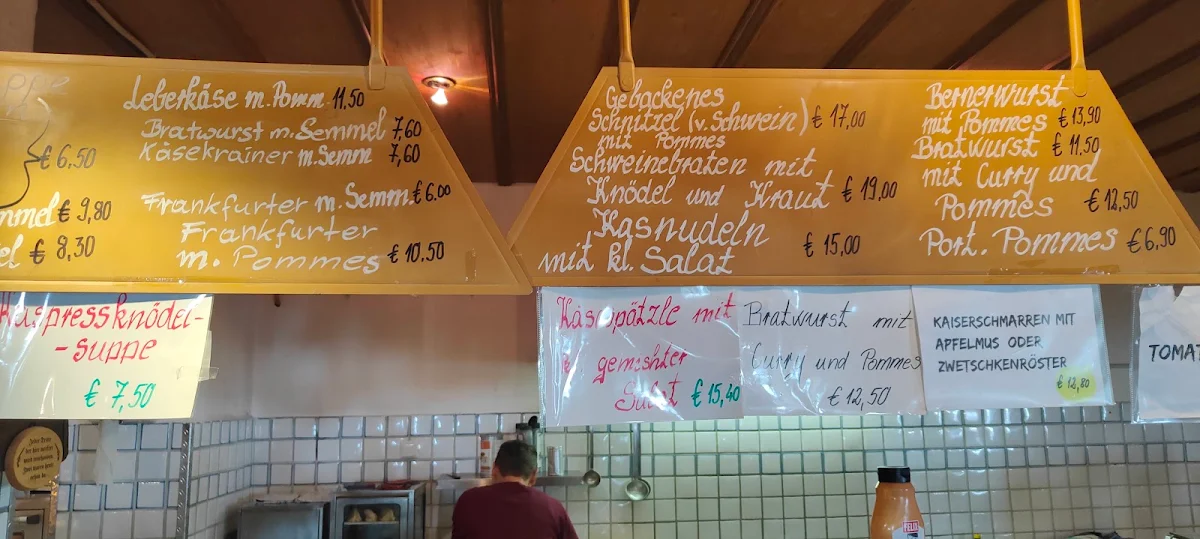 € 6,50
€ 9,80
€ 8,30
Leberkäse m. Pomm 11,50
Bratwurst m. Semmel 7,60
Käsekrainer m. Semm 7,60
Frankfurter m. Semm. € 6.00
Frankfurter
m. Pommes € 10.50
Gebackenes
Schnitzel (v. Schwein) € 17,00
mit Pommes
Schweinebraten mit
Knödel und Kraut € 19,00
Kasnudeln
mit kl. Salat € 15,00
Bernerwurst
mit Pommes € 13,90
Bratwurst € 11,50
mit Curry und
Pommes € 12,50
Port. Pommes € 6,90
Kaspressknödel-
-suppe
€ 7,50
Käsespätzle mit
gemischter
Salat € 15,40
Bratwurst mit
Curry und Pommes
€ 12,50
KAISERSCHMARREN MIT
APFELMUS ODER
ZWETSCHKENRÖSTER
€ 12,80
TOMAT
FELIX